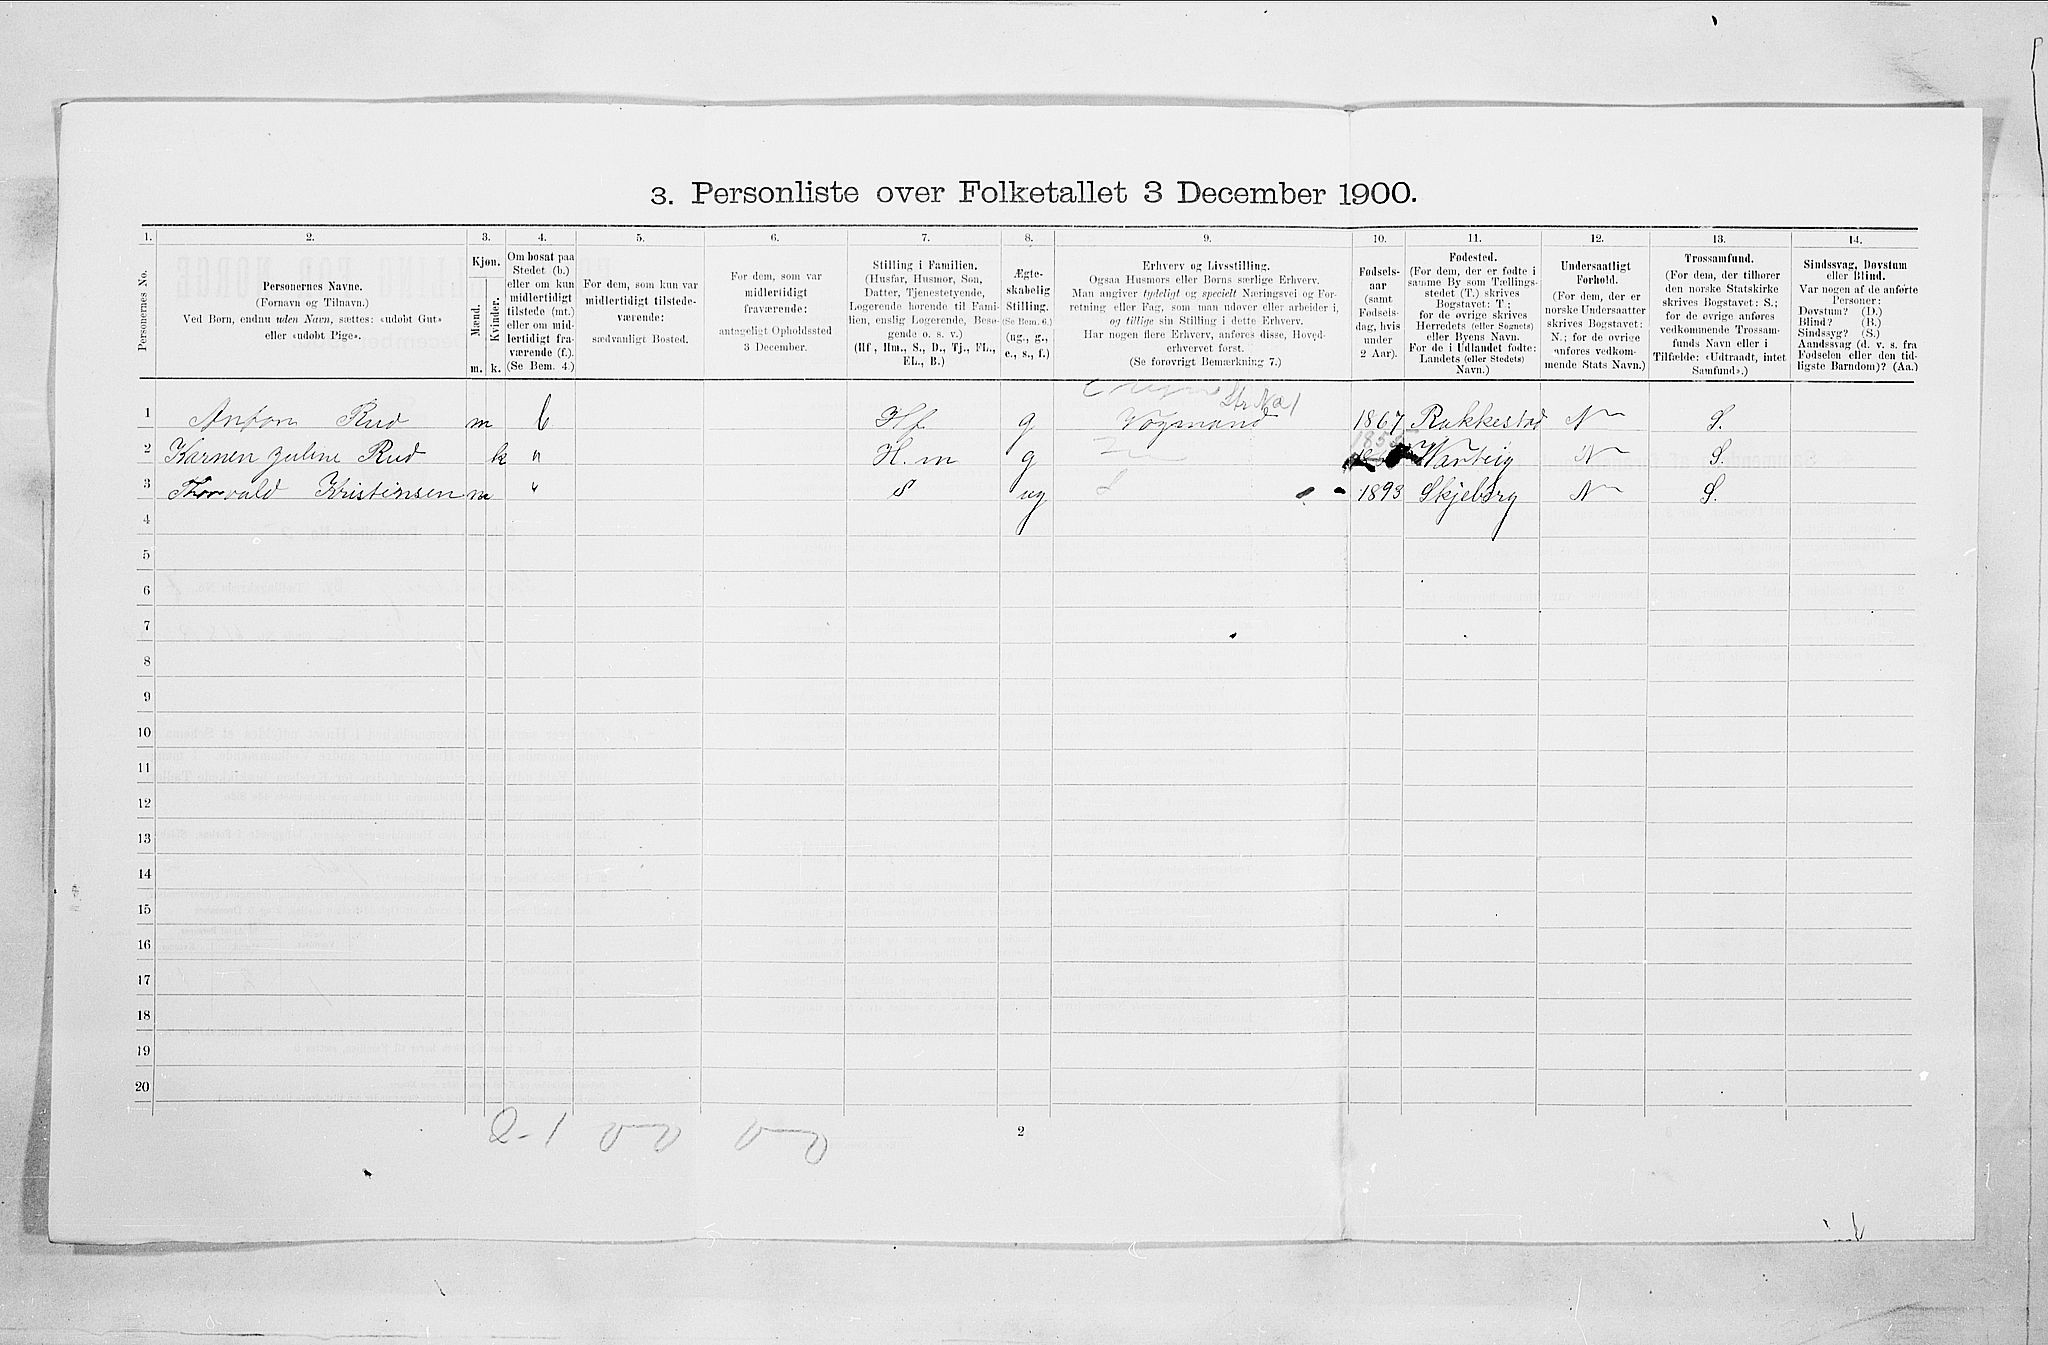 3. Personliste over Folketallet 3 December 1900.
1. 2. 3. 4. 5. 6. 7. 8. 9. 10. 11. 12. 13. 14.
Personernes No.
Personernes Navne.
(Fornavn og Tilnavn.)
Ved Børn, endnu uden Navn, sættes: «udøbt Gut»
eller «udøbt Pige».
Kjøn.
Mænd.
Kvinder.
m. k.
Om bosat paa
Stedet (b.)
eller om kun
midlertidigt
tilstede (mt.)
eller om mid-
lertidigt fra-
værende (f.).
(Se Bem. 4.)
For dem, som kun var
midlertidigt tilstede-
værende:
sædvanligt Bosted.
For dem, som var
midlertidigt
fraværende:
antageligt Opholdssted
3 December.
Stilling i Familien.
(Husfar, Husmor, Søn,
Datter, Tjenestetyende,
Logerende hørende til Fami-
lien, enslig Logerende, Besø-
gende o. s. v.)
(Hf., Hm., S., D., Tj., FL.,
EL., B.)
Ægte-
skabelig
Stilling.
(Se Bem. 6.)
(ug., g.,
e., s., f.)
Erhverv og Livsstilling.
Ogsaa Husmors eller Børns særlige Erhverv.
Man angiver tydeligt og specielt Næringsvei og For-
retning eller Fag, som man udøver eller arbeider i,
og tillige sin Stilling i dette Erhverv.
Har nogen flere Erhverv, anføres disse, Hoved-
erhvervet først.
(Se forøvrigt Bemærkning 7.)
Fødsels-
aar
(samt
Fødsels-
dag, hvis
under
2 Aar).
Fødested.
(For dem, der er fødte i
samme By som Tællings-
stedet (T.) skrives
Bogstavet: T.;
for de øvrige skrives
Herredets (eller Sognets)
eller Byens Navn.
For de i Udlandet fødte:
Landets (eller Stedets)
Navn.)
Undersaatligt
Forhold.
(For dem, der er
norske Undersaatter
skrives Bogstavet:
N.; for de øvrige
anføres vedkom-
mende Stats Navn.)
Trossamfund.
(For dem, der tilhører
den norske Statskirke
skrives Bogstavet: S.;
for de øvrige anføres
vedkommende Trossam-
funds Navn eller i
Tilfælde: «Udtraadt, intet
Samfund».)
Sindssvag, Døvstum
eller Blind.
Var nogen af de anførte
Personer:
Døvstum? (D.)
Blind? (B.)
Sindssyg? (S.)
Aandssvag (d. v. s. fra
Fødselen eller den tid-
ligste Barndom)? (Aa.)
1 Anton Rud m b Hf g Vogmand 1867 Rakkestad N S.
2 Karnen Juline Rud k " H. m g Varteig N S.
3 Thorvald Kristensen m " S ug 1893 Skjeberg N S.
4
5
6
7
8
9
10
11
12
13
14
15
16
17
18
19
20
2